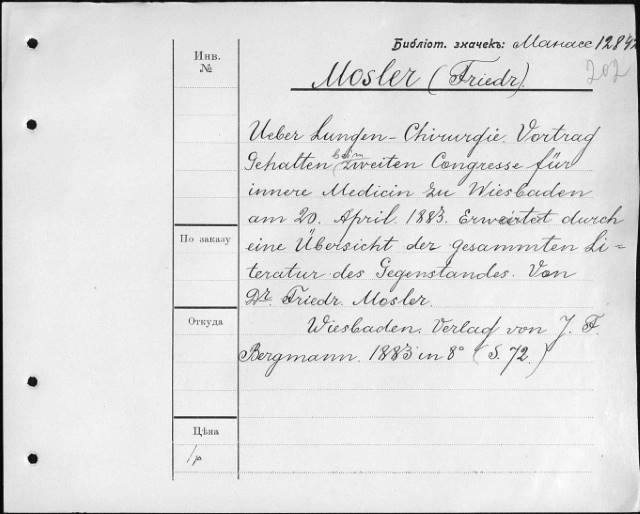 Библіот. значекъ: Манасс 12842
202
Инв.
№
Mosler (Friedr).
Ueber Lungen-Chirurgie. Vortrag
Gehalten beim zweiten Congresse für
innere Medicin zu Wiesbaden
am 20. April. 1883. Erweirtet durch
По заказу
eine Übersicht der gesammten Li=
teratur des Gegenstandes. Von
Dr. Friedr. Mosler.
Откуда
Wiesbaden. Verlag von J. F.
Bergmann. 1883 in 8° (S. 72.)
Цѣна
1р